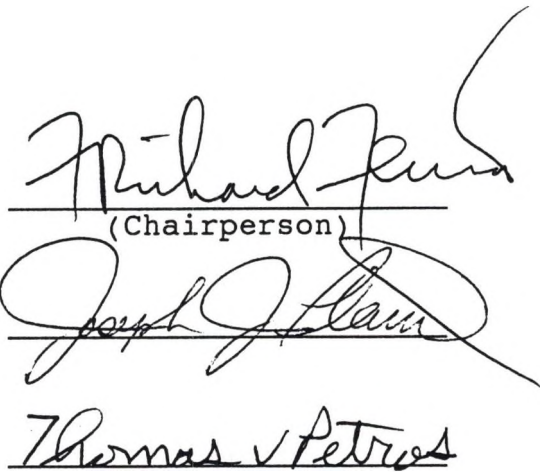 F Richard Ferraro
(Chairperson)
Joseph J Plaud
Thomas V Petros